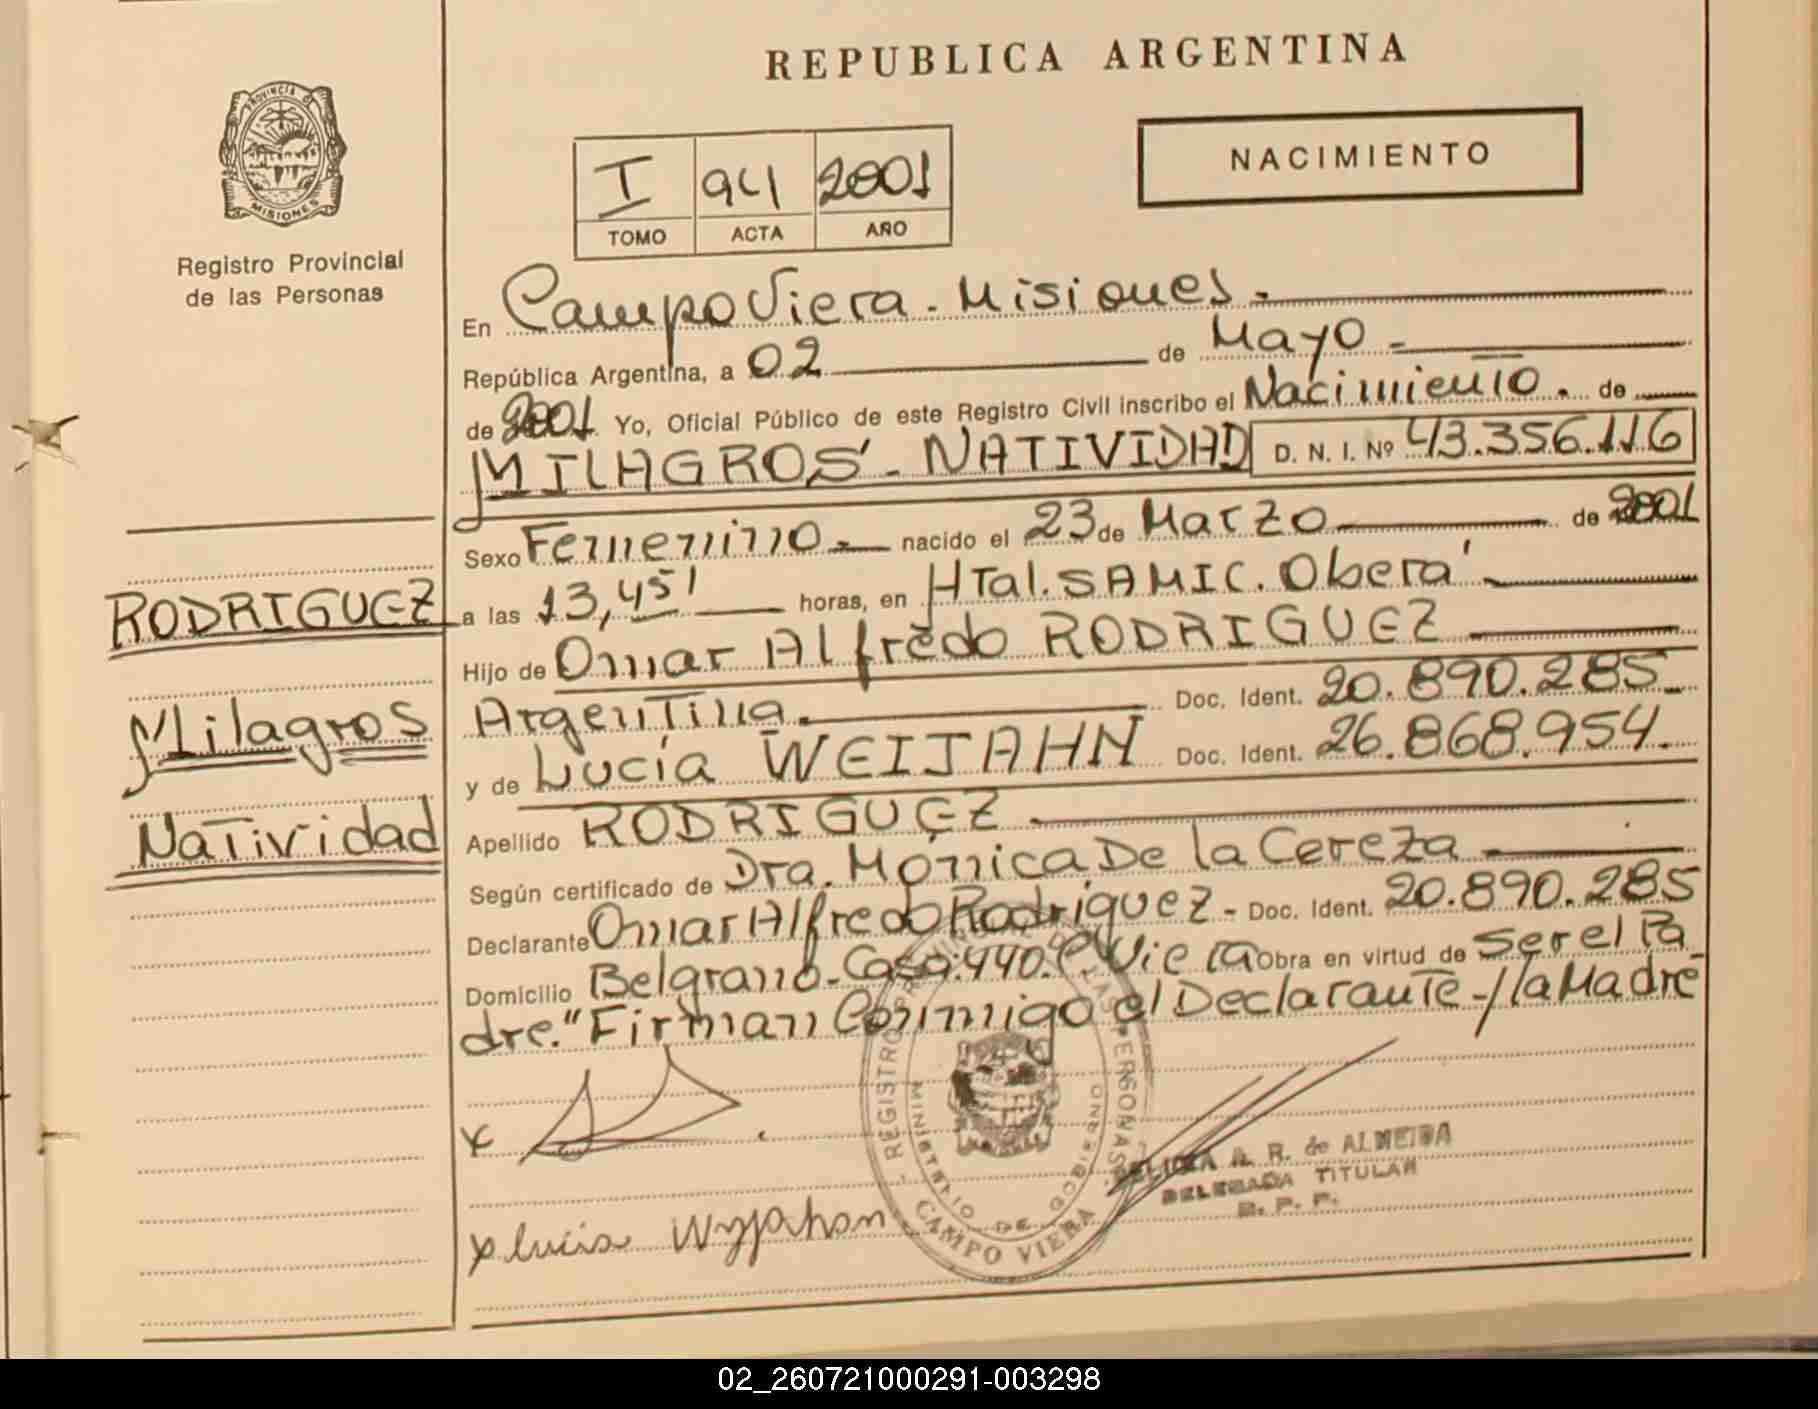 REPUBLICA ARGENTINA
PROVINCIA DE
MISIONES
Registro Provincial
de las Personas
I 94 2001
TOMO ACTA AÑO
NACIMIENTO
En Campo Viera - Misiones -
República Argentina, a 02 de Mayo -
de 2001 Yo, Oficial Público de este Registro Civil inscribo el Nacimiento. de
MILAGROS - NATIVIDAD D. N. I. Nº 43.356.116
Sexo Femenino - nacido el 23 de Marzo de 2001
a las 13,45' horas, en HTal. SAMIC. Oberá
Hijo de Omar Alfredo RODRIGUEZ
Argentina. Doc. Ident. 20.890.285
y de Lucía WEIJAHN Doc. Ident. 26.868.954.
Apellido RODRIGUEZ
Según certificado de Dra. Mónica De la Cereza
Declarante Omar Alfredo Rodriguez - Doc. Ident. 20.890.285
Domicilio Belgrano - Casa: 440. C. Viera Obra en virtud de ser el Pa
dre." Firman Conmigo el Declarante - / la Madre
RODRIGUEZ
Milagros
Natividad
x
x Lucia Wyjahan
REGISTRO PROVINCIAL DE LAS PERSONAS
MINISTERIO DE GOBIERNO
CAMPO VIERA
A. R. de ALMEIDA
DELEGADA TITULAR
R. P. P.
02_260721000291-003298